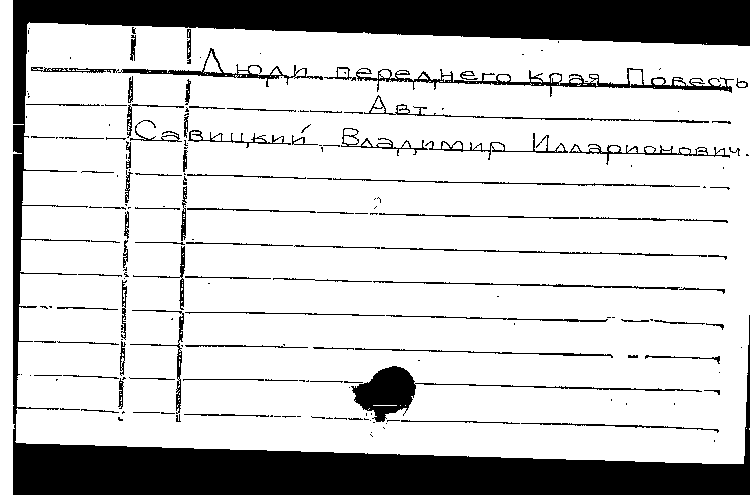 Люди переднего края. Повесть
Авт.:
Савицкий, Владимир Илларионович.